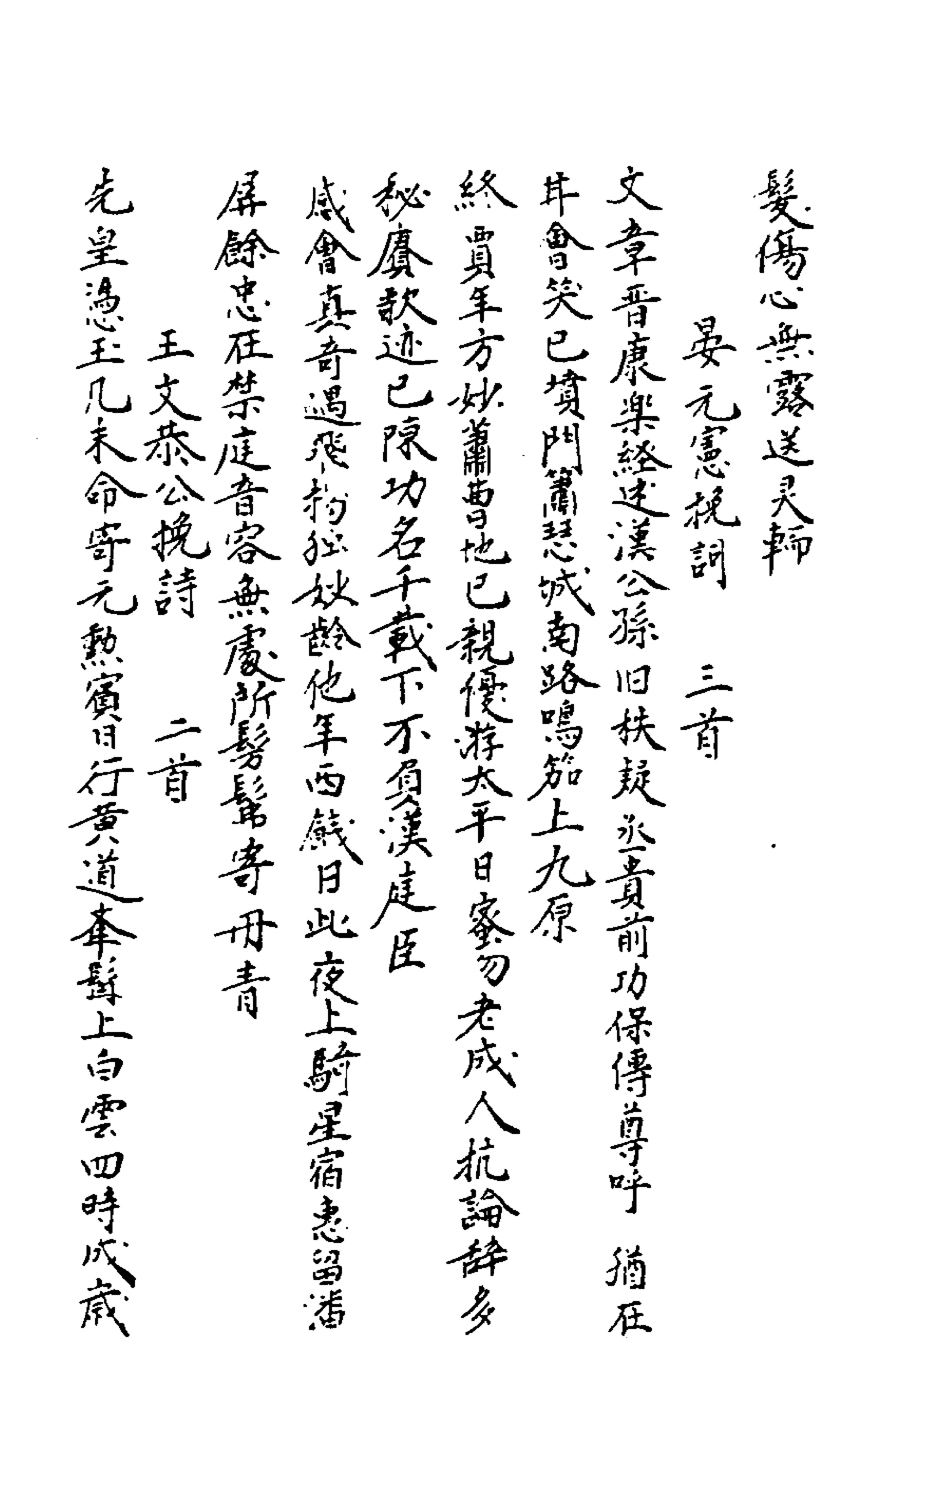 髮傷心無露送灵輀
晏元憲挽詞 三首
文章晋康楽経述漢公孫旧秩疑丞貴前功保傅尊呼 猶在
耳會笑已墳門簫瑟城南路鳴笳上九原
終賈年方妙蕭曹地已親優游太平日蜜勿老成人抗論辞多
秘賡歌迹已陳功名千載下不負漢庭臣
感會真奇遇飛揚独妙齡他年西餞日此夜上騎星宿惠留潘
屏餘忠在禁庭音容無處所髣髴寄丹青
王文恭公挽詩 二首
先皇憑玉几末命寄元勲賓日行黄道牽髯上白雲四時成歳